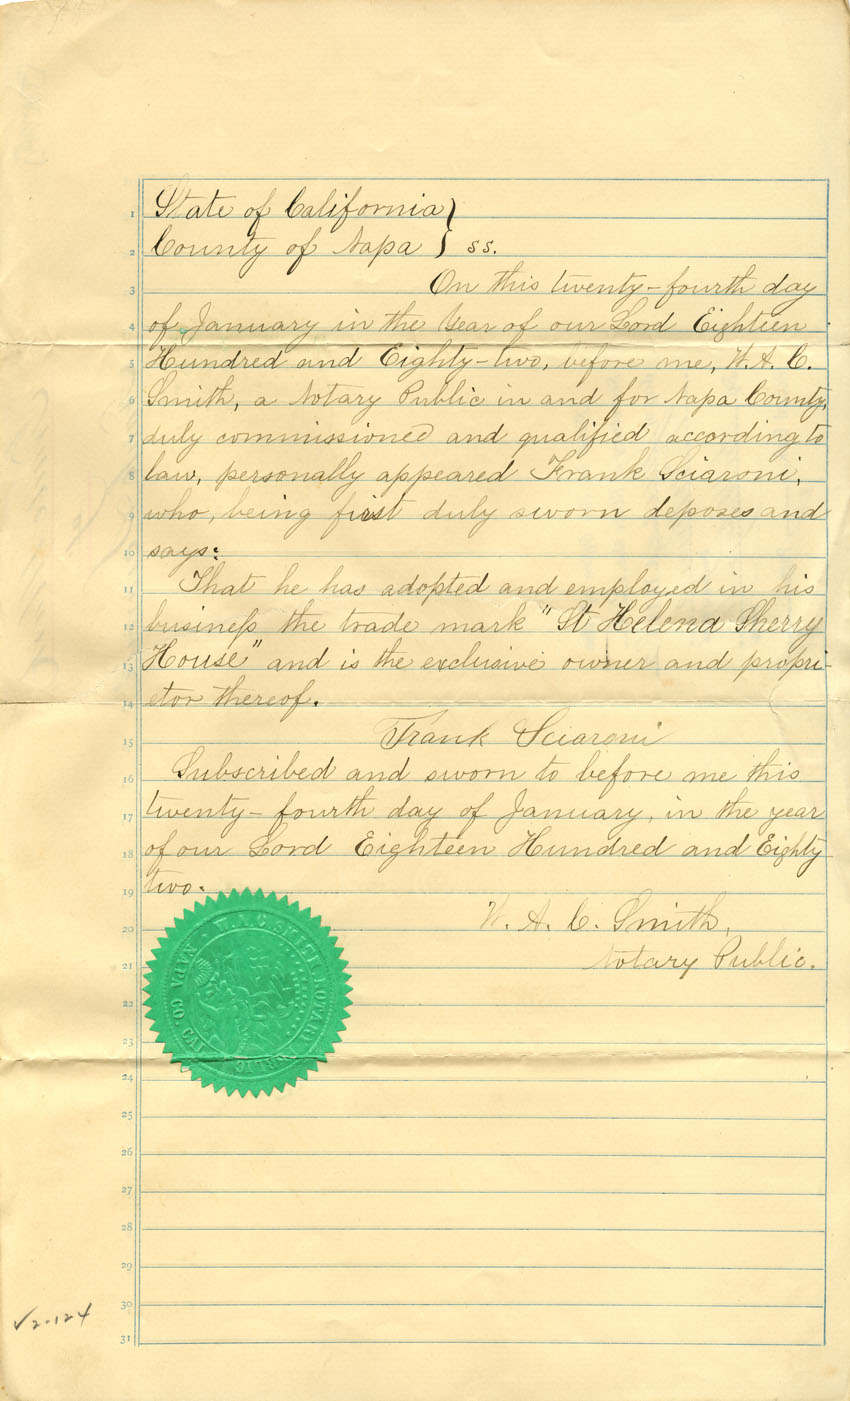 State of California }
County of Napa } ss.
On this twenty-fourth day
of January in the Year of our Lord Eighteen
Hundred and Eighty-two, before me, W. A. C.
Smith, a Notary Public in and for Napa County,
duly commissioned and qualified according to
law, personally appeared Frank Sciaroni,
who, being first duly sworn deposes and
says:
That he has adopted and employed in his
business the trade mark "St Helena Sherry
House" and is the exclusive owner and propri-
etor thereof.
Frank Sciaroni
Subscribed and sworn to before me this
twenty-fourth day of January, in the year
of our Lord Eighteen Hundred and Eighty-
two.
W. A. C. Smith,
Notary Public.
W.A.C. SMITH NOTARY PUBLIC
NAPA CO. CAL
1
2
3
4
5
6
7
8
9
10
11
12
13
14
15
16
17
18
19
20
21
22
23
24
25
26
27
28
29
30
31
√2-124